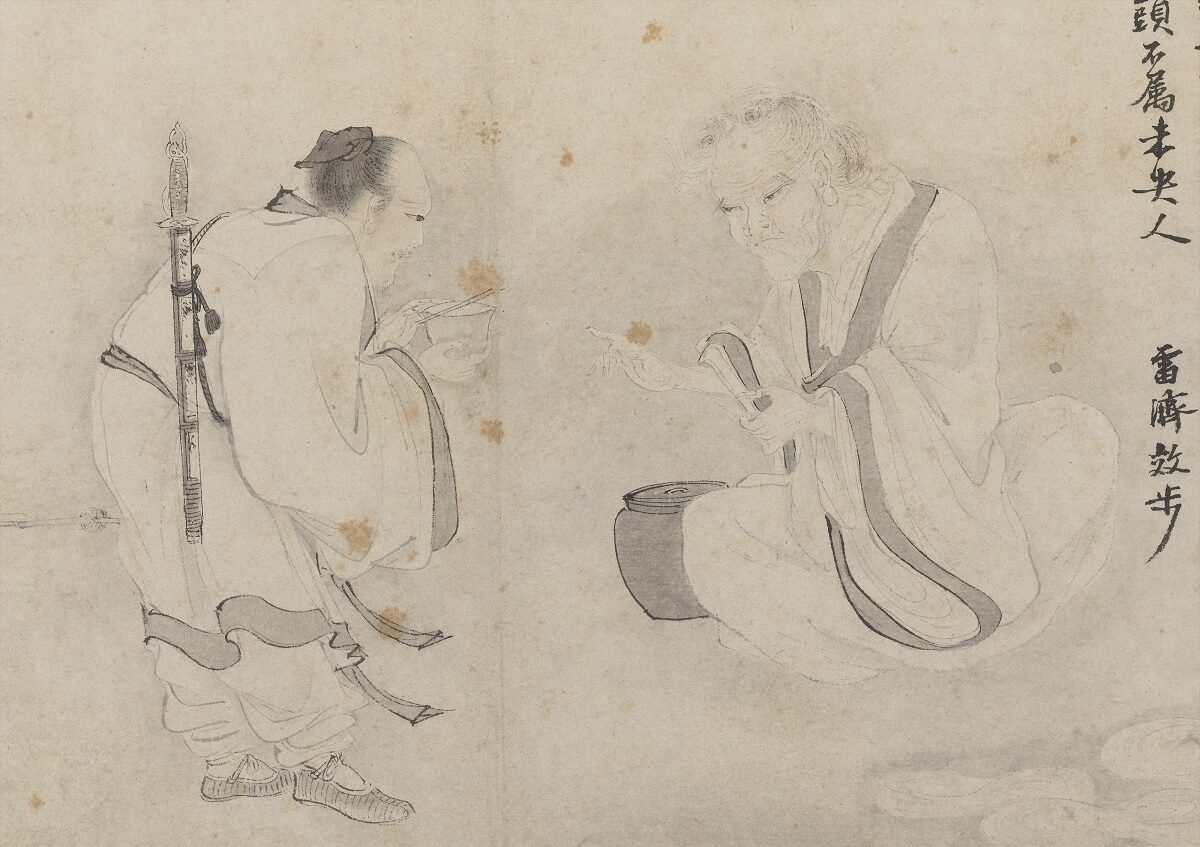 頭不属未央人
雷濟效步